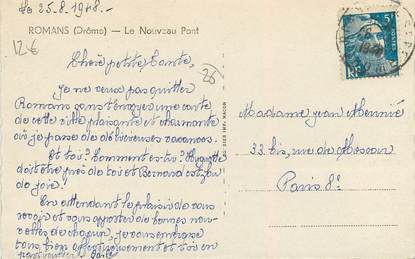 Le 25.8.1948.-
ROMANS (Drôme) - Le Nouveau Pont
12€
Chère petite tante,
26
Je ne veux pas quitter
Romans sans t'envoyer une carte
de cette ville plaisante et charmante
où je passe de délicieuses vacances.
Et toi? Comment es-tu? Huguette
doit être près de toi et Bernard est fou
de joie!
En attendant le plaisir de vous
revoir et vous apporter de bonnes nou-
velles de chacun, je vous embrasse
tous bien affectueusement et toi en
particulier
Madame Jean
33 bis, rue de Moscou
Paris 8e
5F
POSTES
RF